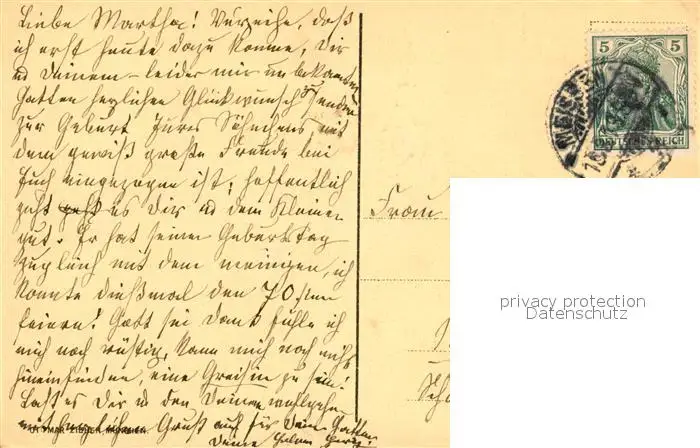 Liebe Martha! Verzeihe, daß
ich erst heute dazu komme, Dir
u Deinem – leider mir unbekannten
Gatten herzlichen Glückwunsch zu senden
zur Geburt Eures Söhnchens, mit
dem gewiß große Freude bei
Euch eingezogen ist; hoffentlich
geht es Dir u dem Kleinen
gut. Er hat seinen Geburtstag
zugleich mit dem meinigen, ich
konnte dießmal den 70sten
feiern! Gott sei Dank fühle ich
mich noch rüstig, kann mich noch nicht
hineinfinden, eine Greisin zu sein!
Laßt es Dir u den Deinen wohlgehn
Gruß auf für Dein Gatten
Deine
OTTMAR ZIEHER, MÜNCHEN
5 5
DEUTSCHES REICH
MEISSEN
Frau
privacy protection
Datenschutz